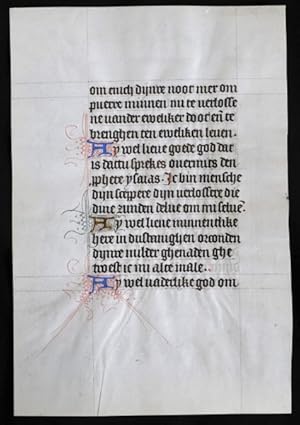 om euich dijnre noot mer om
puerre minnen mi te verlosse
ne vander eweliker doot eñ te
brenghen ten eweliken leuen.
Ay wel lieue goede god du
is dattu sprekes ouermits den
prophete ysaias. Ic bin mensche
dijn scepper dijn verlossere die
dine zunden delue om mi seluē.
Ay wel lieue minnentlike
here in dusdanighen orconden
dijnre milder ghenaden ghe
twest ic mi alte male.
Ay wel vaderlike god om